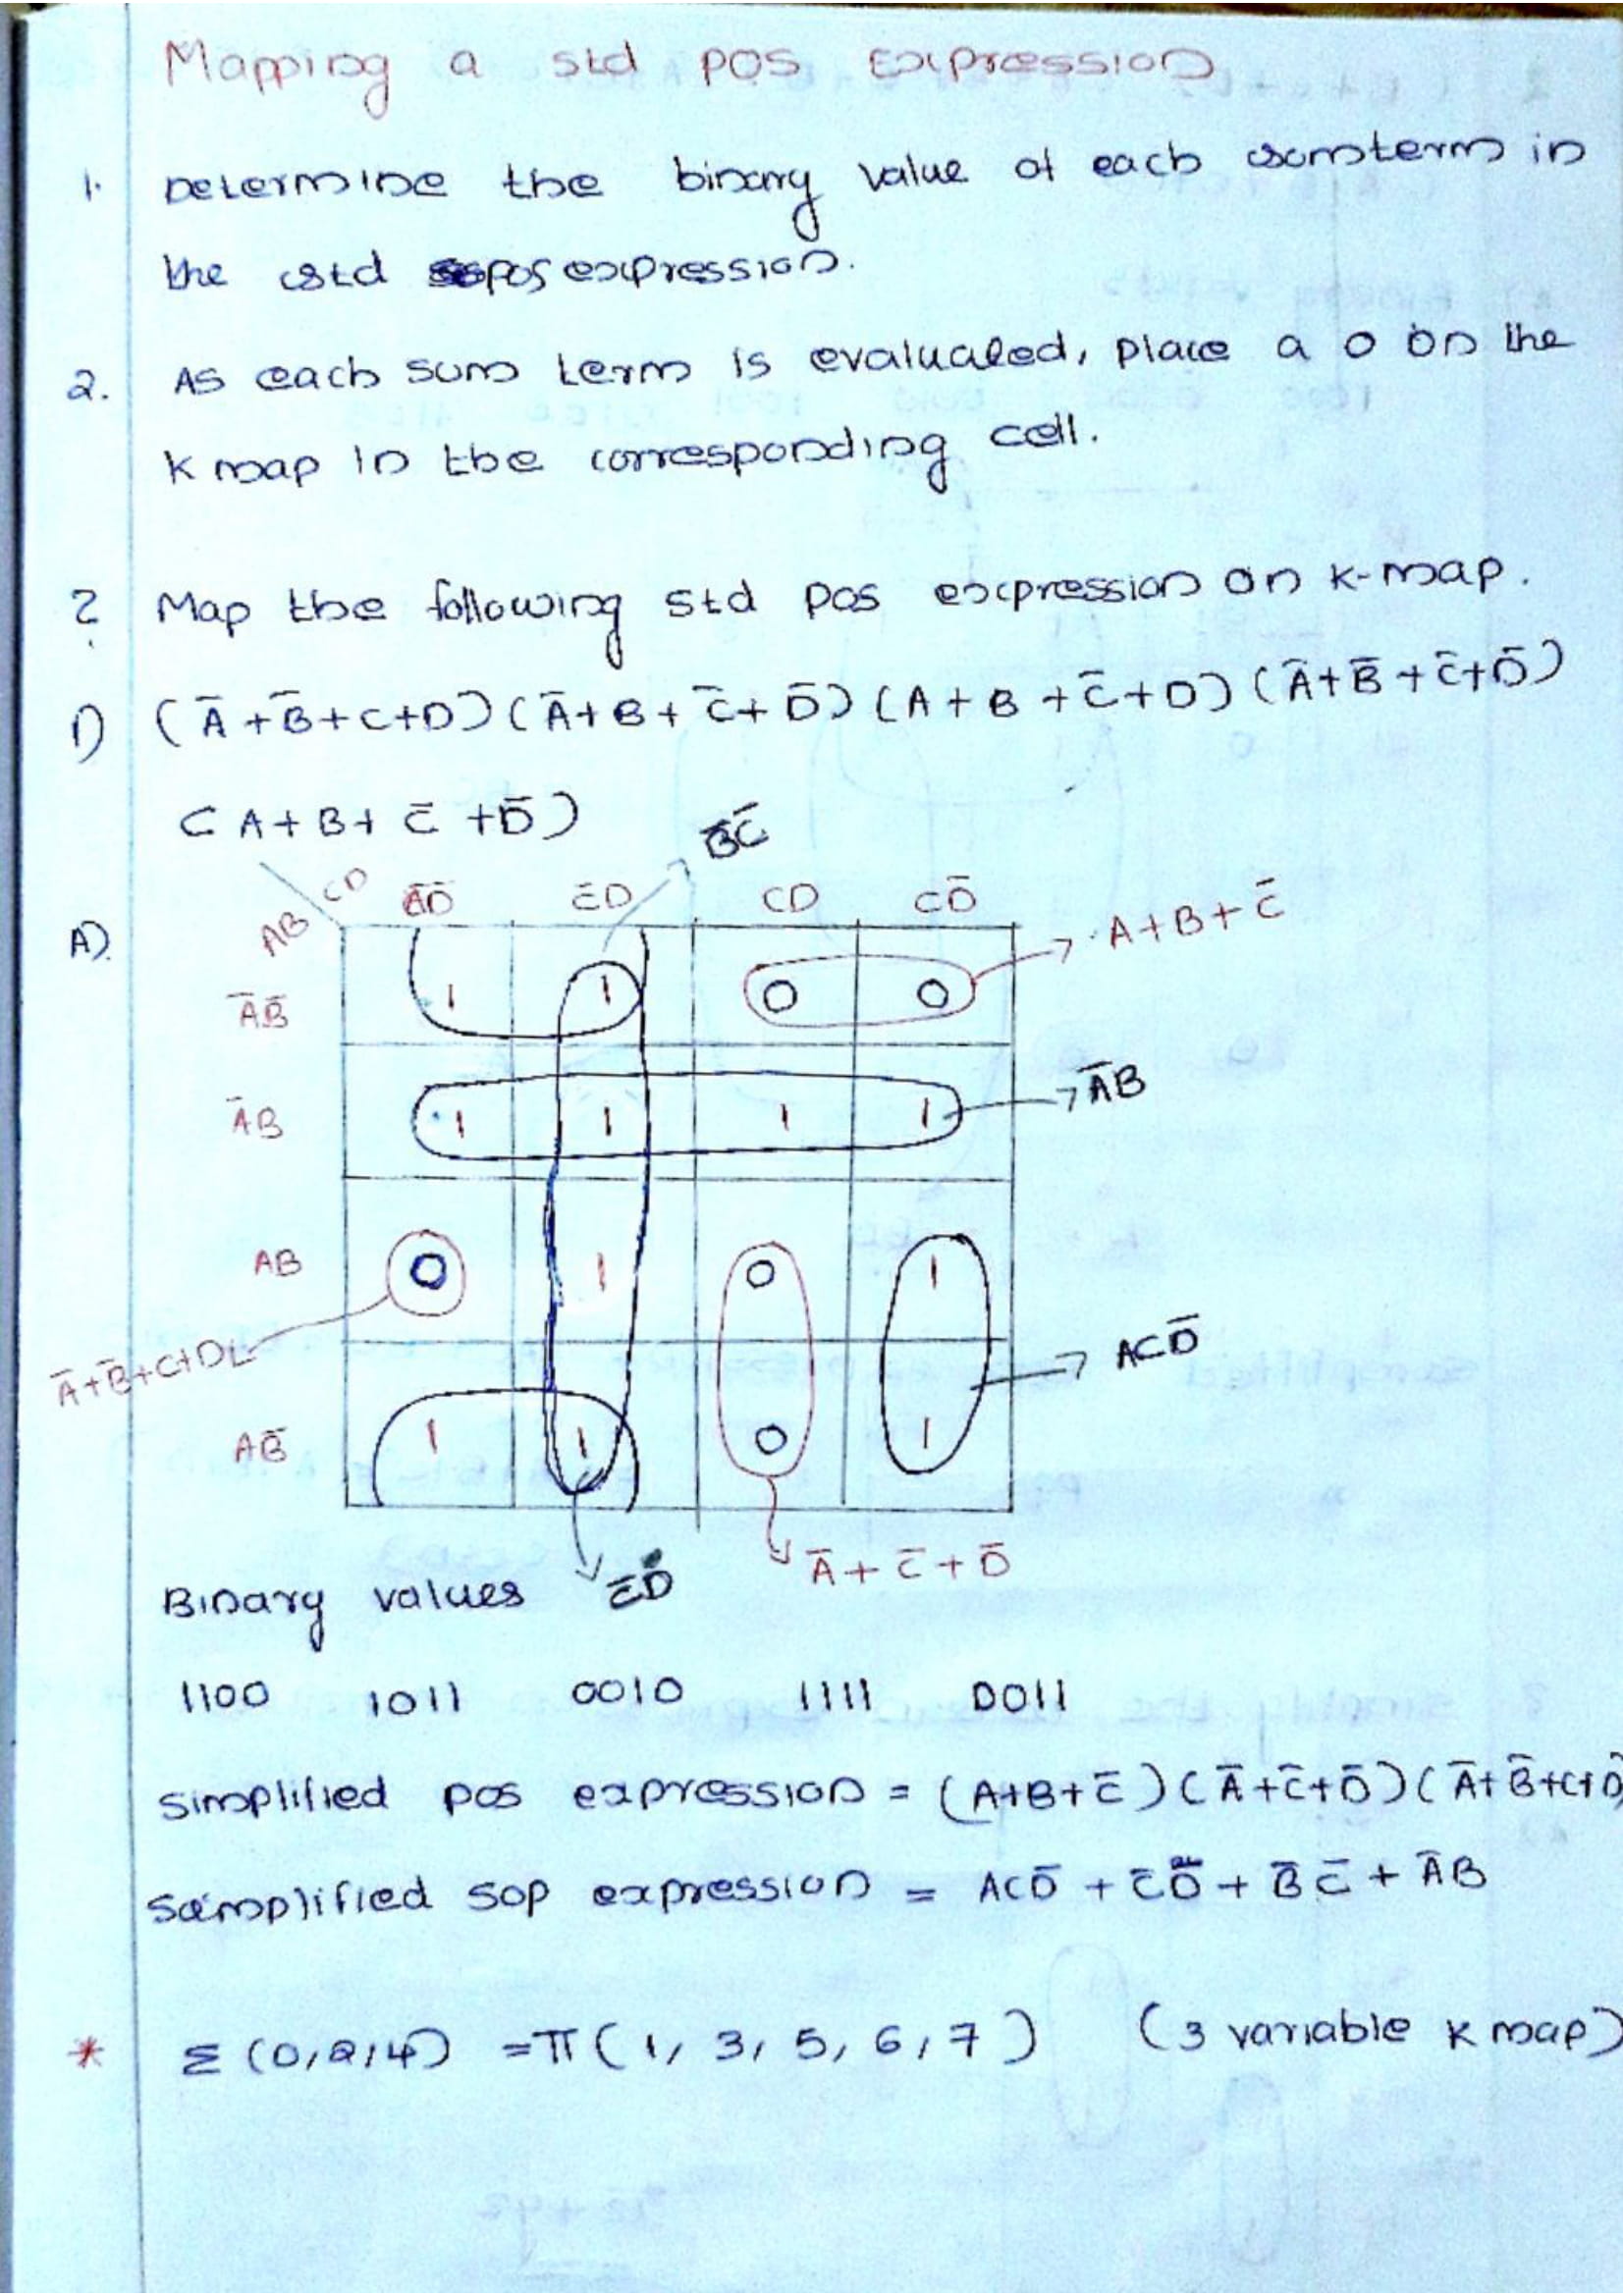 Mapping a std pos expression
1. Determine the binary value of each sumterm in
the std pos expression.
2. As each sum term is evaluated, place a 0 on the
K map in the corresponding cell.
? Map the following std pos expression on K-map.
1) (A̅+B̅+C+D)(A̅+B+C̅+D̅)(A+B+C̅+D)(A̅+B̅+C̅+D̅)
(A+B+C̅+D̅)
B̅C̅
A) AB CD C̅D CD CD̅
A+B+C̅
A̅B̅ 1 1 0 0
A̅B 1 1 1 1 A̅B
AB 0 1 0 1
A̅+B̅+C+D
ACD̅
AB̅ 1 1 0 1
A̅+C̅+D̅
Binary values C̅D
1100 1011 0010 1111 0011
simplified pos expression = (A+B+C̅)(A̅+C̅+D̅)(A̅+B̅+C+D
simplified sop expression = ACD̅ + C̅D + B̅C̅ + A̅B
* Σ(0,2,4) =π(1, 3, 5, 6, 7) (3 variable K map)